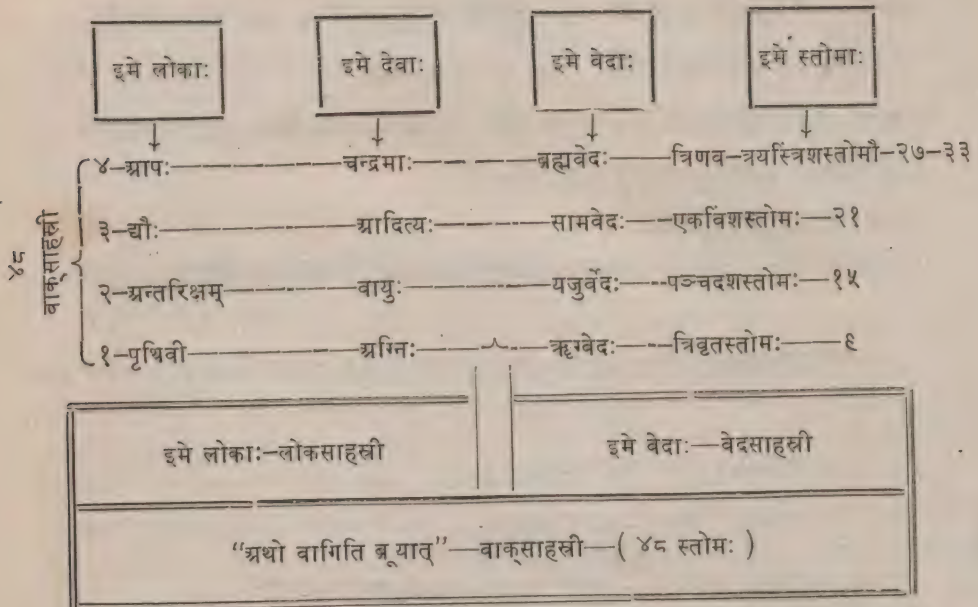 इमे लोकाः इमे देवाः इमे वेदाः इमे स्तोमाः
४-आपः चन्द्रमाः ब्रह्मवेदः त्रिणव-त्रयस्त्रिंशस्तोमौ-२७-३३
३-द्यौः आदित्यः सामवेदः एकविंशस्तोमः-२१
२-अन्तरिक्षम् वायुः यजुर्वेदः पञ्चदशस्तोमः-१५
१-पृथिवी अग्निः ऋग्वेदः त्रिवृतस्तोमः-९
४८
वाक्साहस्री
इमे लोकाः-लोकसाहस्री इमे वेदाः-वेदसाहस्री
“अथो वागिति ब्रूयात्”-वाक्साहस्री-( ४८ स्तोमः )